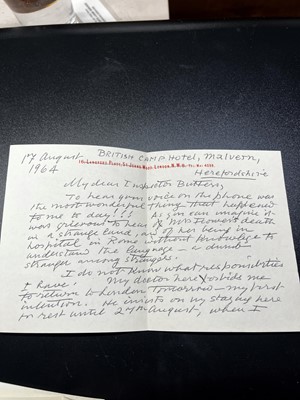 17 August 1964
BRITISH CAMP HOTEL, Malvern,
Herefordshire
My dear Inspector Butters,
To hear your voice on the phone was
the most wonderful thing that happened
to me to day!!! As you can imagine it
was grievous to hear of Mrs
in a strange land, and of her being in
hospital in Rome without knowledge to
understand the language – a dumb
stranger among strangers.
I do not know what responsibilities
I have! My doctor here forbids me
to return to London Tomorrow – my first
intention. He insists on my staying here
to rest until 27th August, when I